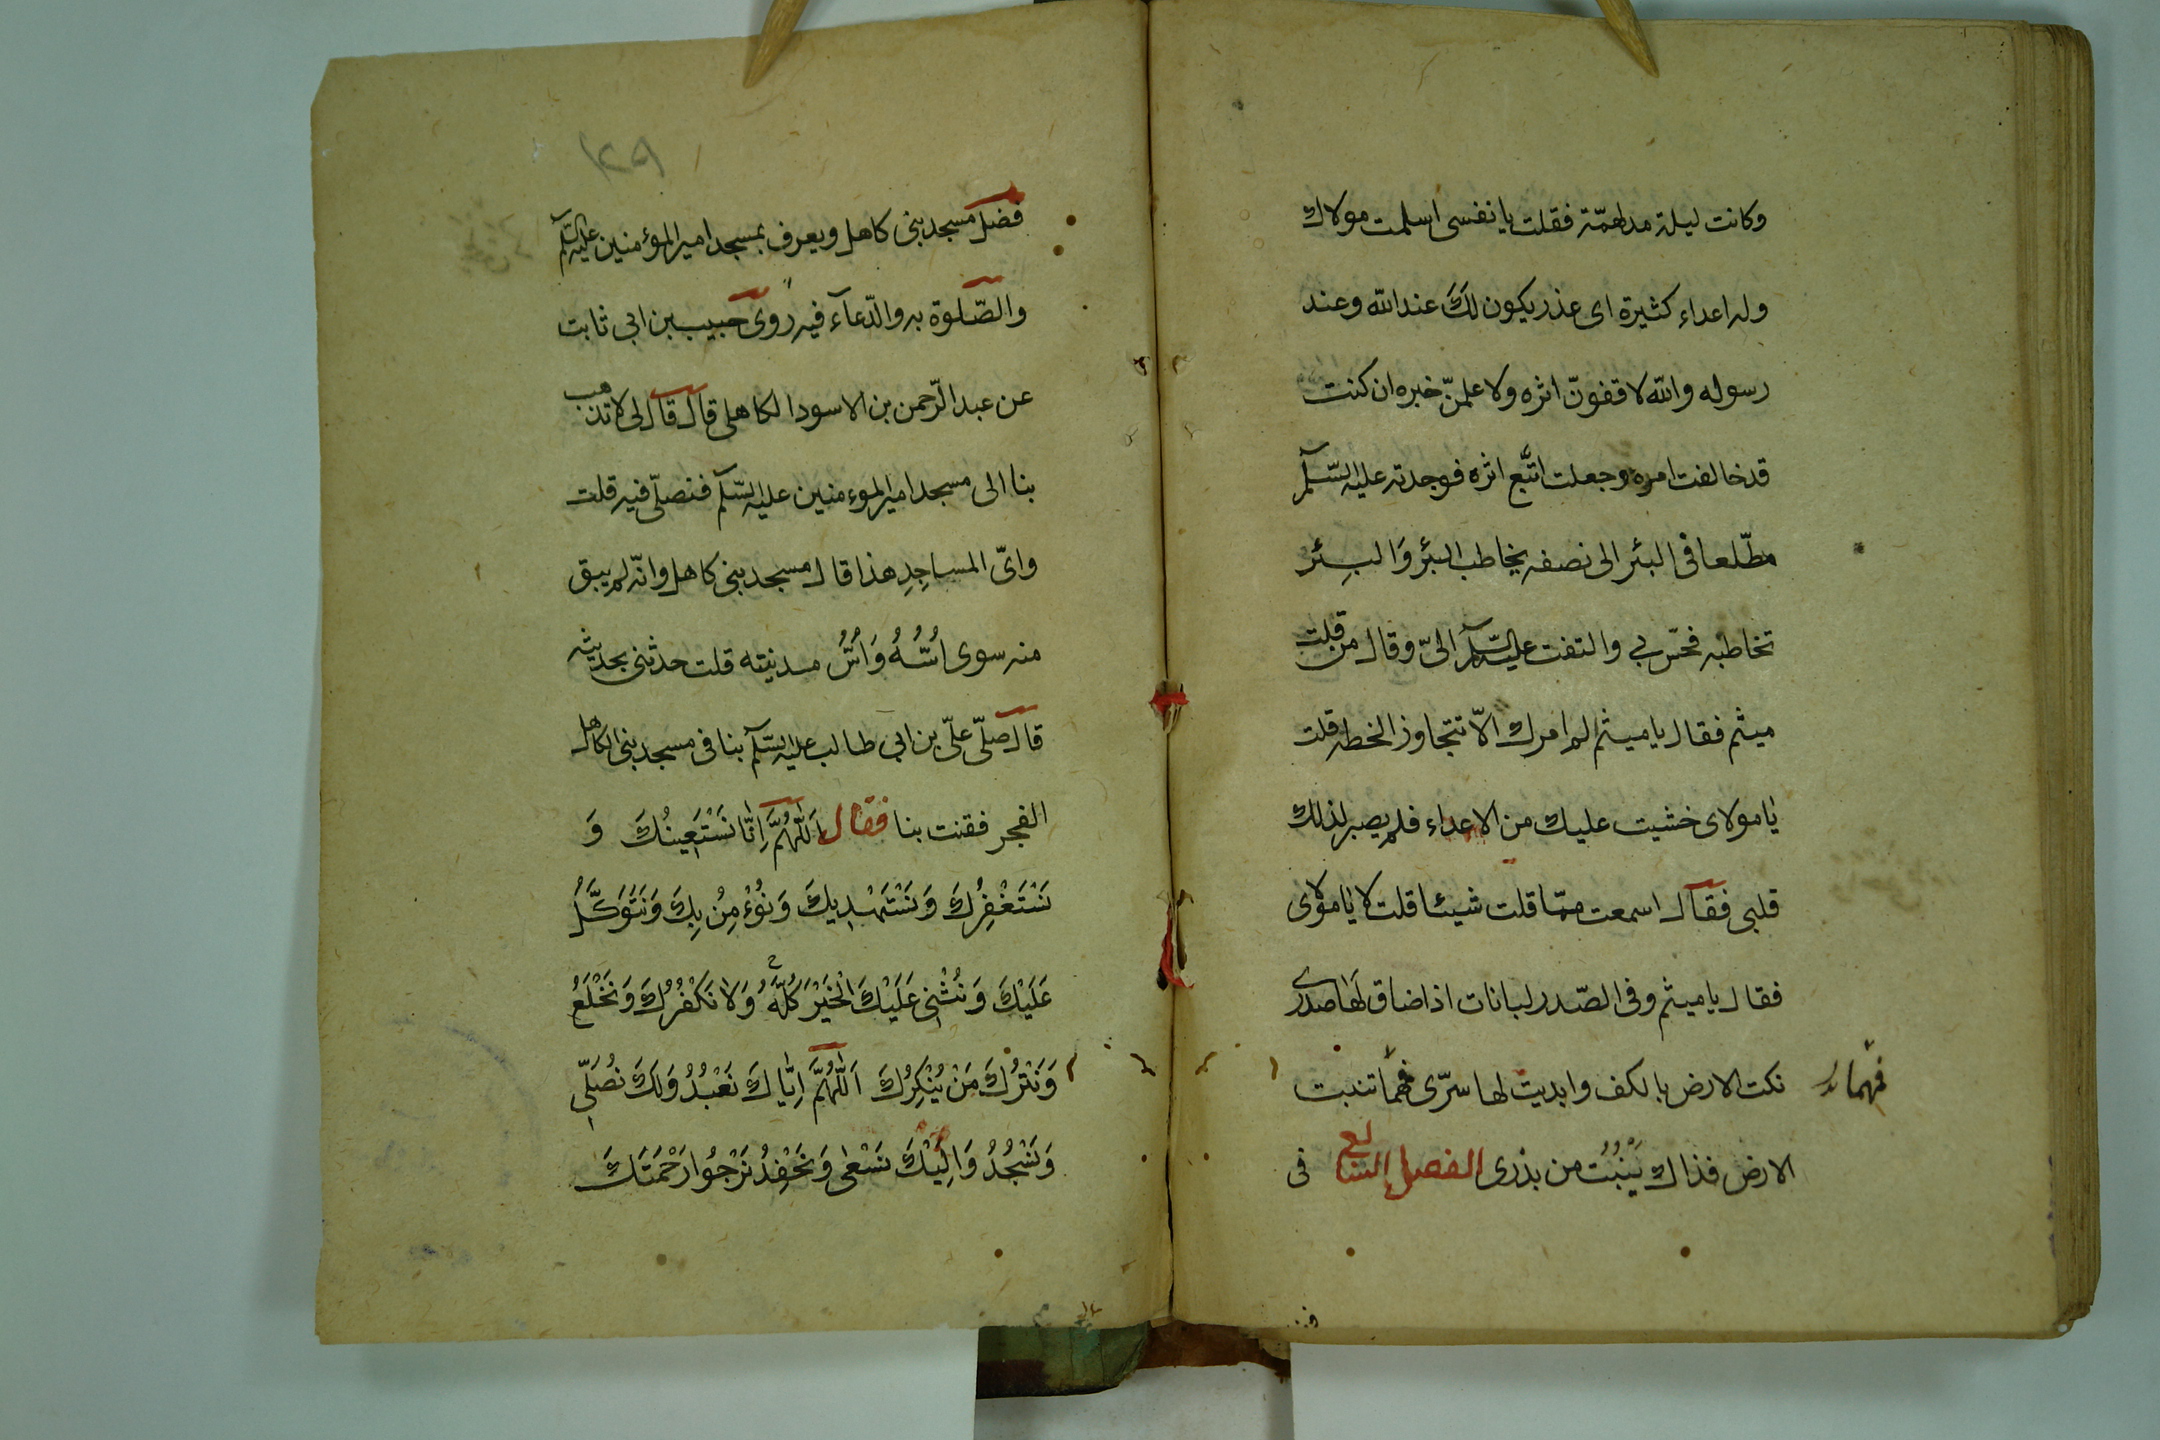 وكانت ليلة مدلهمّة فقلت يا نفسى اسلمت مولاك
وله اعداء كثيرة اى عذر يكون لكَ عند الله وعند
رسوله والله لاقفونّ اثره ولاعلمنّ خبره ان كنت
قد خالفت امره وجعلت اتّبع اثره فوجدته عليه السّلام
مطّلعا فى البئر الى نصفه يخاطب البئر وَالبِئر
تخاطبه فحّس بي والتفت عليه السّلام الىّ وقال من قلت
ميثم فقال يا ميثم الم امرك الاّ تتجاوز الخطه قلت
يا مولاى خشيت عليك من الاعداء فلم يصبر لذلك
قلبى فقال اسمعت ممّا قلت شيئا قلت لا يا مولاى
فقال يا ميثم وفى الصّدر لبانات اذا ضاق لَها صدرى
نكت الارض بالكف وابديت لها سرّى فهما تنبت
فمهما
الارض فذاك يَنْبُت من بذرى الفصل السابع فى
١٥٢
فضل مسجد بنى كاهل ويعرف بمسجد امير المؤمنين عليه السّلام
والصّلوة به والدّعآء فيه روى حبيب بن ابى ثابت
عن عبد الرّحمن بن الاسود الكاهلى قال قال لى لا تذهب
بنا الى مسجد امير الموءمنين عليه السّلام فنصلّى فيه قلت
واىّ المساجِدِ هذا قال مسجد بنى كاهل وانّه لم يبق
منه سوى اُسُّهُ وَاُسُّ مدنيته قلت حدثنى بحديثه
قال صلّى علىّ بن ابى طالب عليه السّلام بنا فى مسجد بنى الكاهل
الفجر فقنت بنا فقال اَللّٰهُمَّ اِنّا نَسْتَعِينُكَ وَ
نَسْتَغْفِرُكَ وَنَسْتَهْدِيكَ وَنُؤْمِنُ بِكَ وَنَتَوَكَّلُ
عَلَيْكَ وَنُثْنِى عَلَيْكَ الْخَيْرَ كُلَّهُ وَلا نَكْفُرُكَ وَنَخْلَعُ
وَنَتْرُكَ مَنْ يُنْكِرُكَ اَللّٰهُمَّ اِيّاكَ نَعْبُدُ وَلَكَ نُصَلّى
وَنَسْجُدُ وَاِلَيْكَ نَسْعٰى وَنَحْفِدُ نَرْجُوا رَحْمَتَكَ